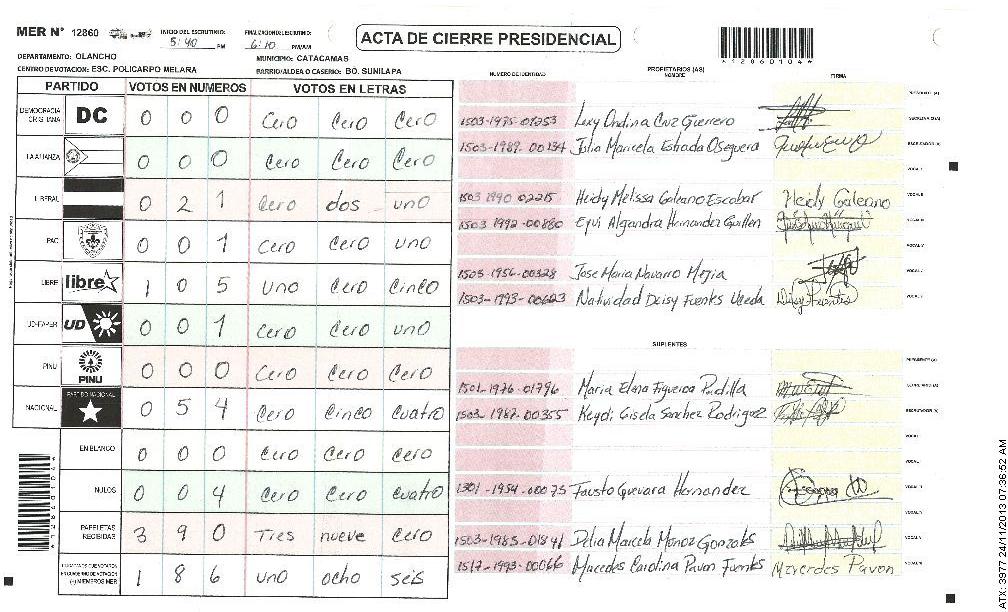 MER N° 12860
INICIO DEL ESCRUTINIO:
5:40 PM
FINALIZACION DE ESCRUTINIO:
6:10 PM/AM
ACTA DE CIERRE PRESIDENCIAL
*12860104*
DEPARTAMENTO: OLANCHO
MUNICIPIO: CATACAMAS
CENTRO DE VOTACION: ESC. POLICARPO MELARA
BARRIO/ALDEA O CASERIO: BO. SUNILAPA
PARTIDO VOTOS EN NUMEROS VOTOS EN LETRAS
DEMOCRACIA CRISTIANA DC 0 0 0 Cero Cero Cero
LA ALIANZA 0 0 0 Cero Cero Cero
LIBERAL 0 2 1 Cero dos uno
PAC 0 0 1 Cero Cero uno
LIBRE libre 1 0 5 uno Cero Cinco
UD-FAPER UD 0 0 1 Cero Cero uno
PINU PINU 0 0 0 Cero Cero Cero
NACIONAL PARTIDO NACIONAL 0 5 4 Cero Cinco Cuatro
EN BLANCO 0 0 0 Cero Cero Cero
NULOS 0 0 4 Cero Cero Cuatro
PAPELETAS RECIBIDAS 3 9 0 Tres nueve Cero
(+) MIEMBROS MER 1 8 6 uno ocho seis
*12860104*
NUMERO DE IDENTIDAD
PROPIETARIOS (AS)
NOMBRE
FIRMA
1503-1975-01253 Lexy Ondina Cruz Guerrero
1503-1989-00134 Julia Maricela Estrada Oseguera
1503 1990 02215 Heidy Melissa Galeano Escobar Heidy Galeano
1503 1992-00880 Alejandra Hernandez Guillen
1503-1956-00328 Jose Maria Navarro Mejia
1503-1993-00623 Natividad Deisy Fuentes Ubeda Deisy Fuentes
SUPLENTES
1501-1976-01796 Maria Elena Figueroa Padilla
1503-1987-00355 Keydi Gisela Sanchez Rodriguez
1301-1954-00075 Fausto Guevara Hernandez
1503-1985-01841 Delia Marcela Monoz Gonzales
1517-1993-00066 Mercedes Carolina Pavon Fuentes Mercedes Pavon
ATX: 3977 24/11/2013 07:36:52 AM